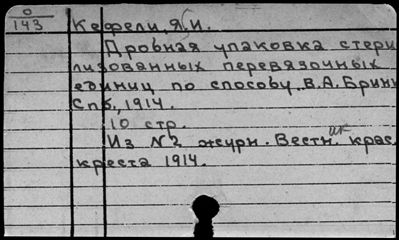 0
143
Кефели, Я. И.
Дробная упаковка стери
лизованных перевязочных
единиц по способу В.А. Брин
Спб., 1914.
10 стр.
Из №2 журн. Вестн. крас.
креста 1914.